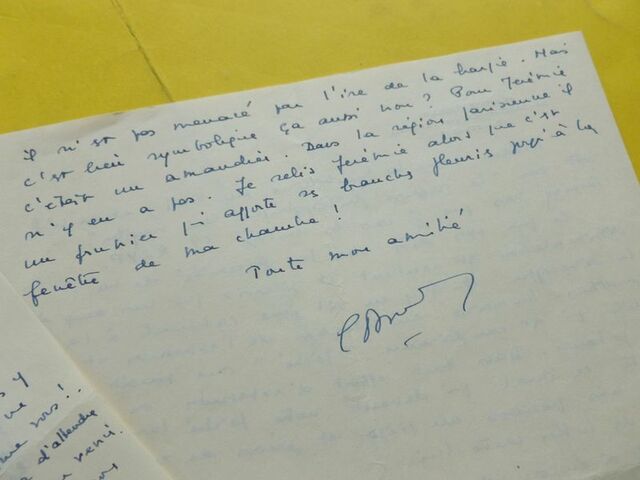 il n'est pas menacé par l'ire de la hargie. Mais
c'est bien symbolique ça aussi non ? Pour Jérémie
c'était un amandier. Dans la région parisienne il
n'y en a pas. Je relis Jérémie alors que c'est
un prunier qui apporte ses branches fleuries jusqu'à la
fenêtre de ma chambre !
Toute mon amitié
d'attendre